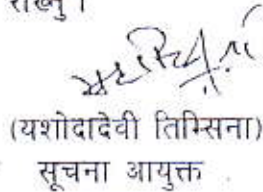 राख्नु ।
(यशोदादेवी तिम्सिना)
सूचना आयुक्त